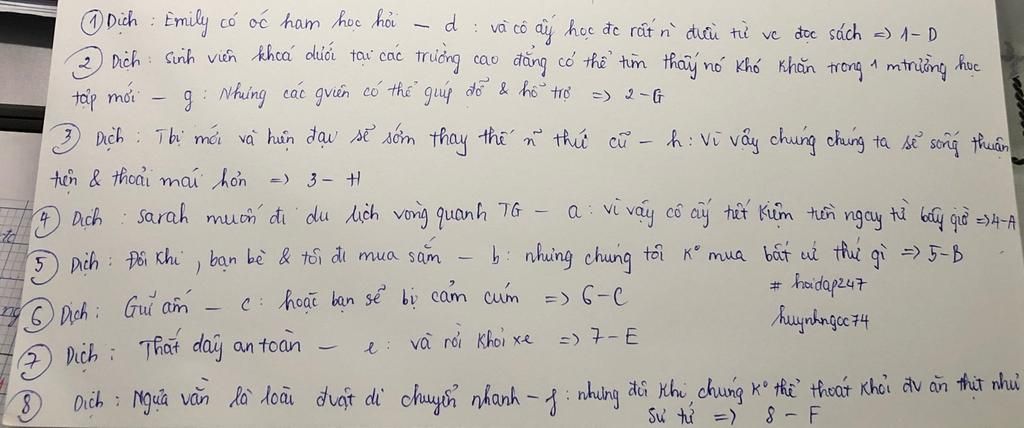 ① Dịch : Emily có óc ham học hỏi – d : và cô ấy học đc rất nˡ điều từ vc đọc sách => 1 – D
② Dịch : Sinh viên khoá dưới tại các trường cao đẳng có thể tìm thấy nó khó khăn trong 1 mtrường học
tập mới – g : Nhưng các gviên có thể giúp đỡ & hỗ trợ => 2-G
③ Dịch : Tbị mới và hiện đại sẽ sớm thay thế n~ thứ cũ – h : vì vậy chúng chúng ta sẽ sống thuận
tiện & thoải mái hơn => 3 – H
④ Dịch : Sarah muốn đi du lịch vòng quanh TG – a : vì vậy cô ấy tiết kiệm tiền ngay từ bây giờ => 4-A
⑤ Dịch : Đôi khi, bạn bè & tôi đi mua sắm – b : nhưng chúng tôi k° mua bất cứ thứ gì => 5-B
# hoidap247
⑥ Dịch : Giữ ấm – c : hoặc bạn sẽ bị cảm cúm => 6-C
huynhngoc74
⑦ Dịch : Thắt dây an toàn – e : và rời khỏi xe => 7-E
⑧ Dịch : Ngựa vằn là loài đvật di chuyển nhanh – f : nhưng đôi khi, chúng k° thể thoát khỏi đv ăn thịt như
sư tử => 8 – F